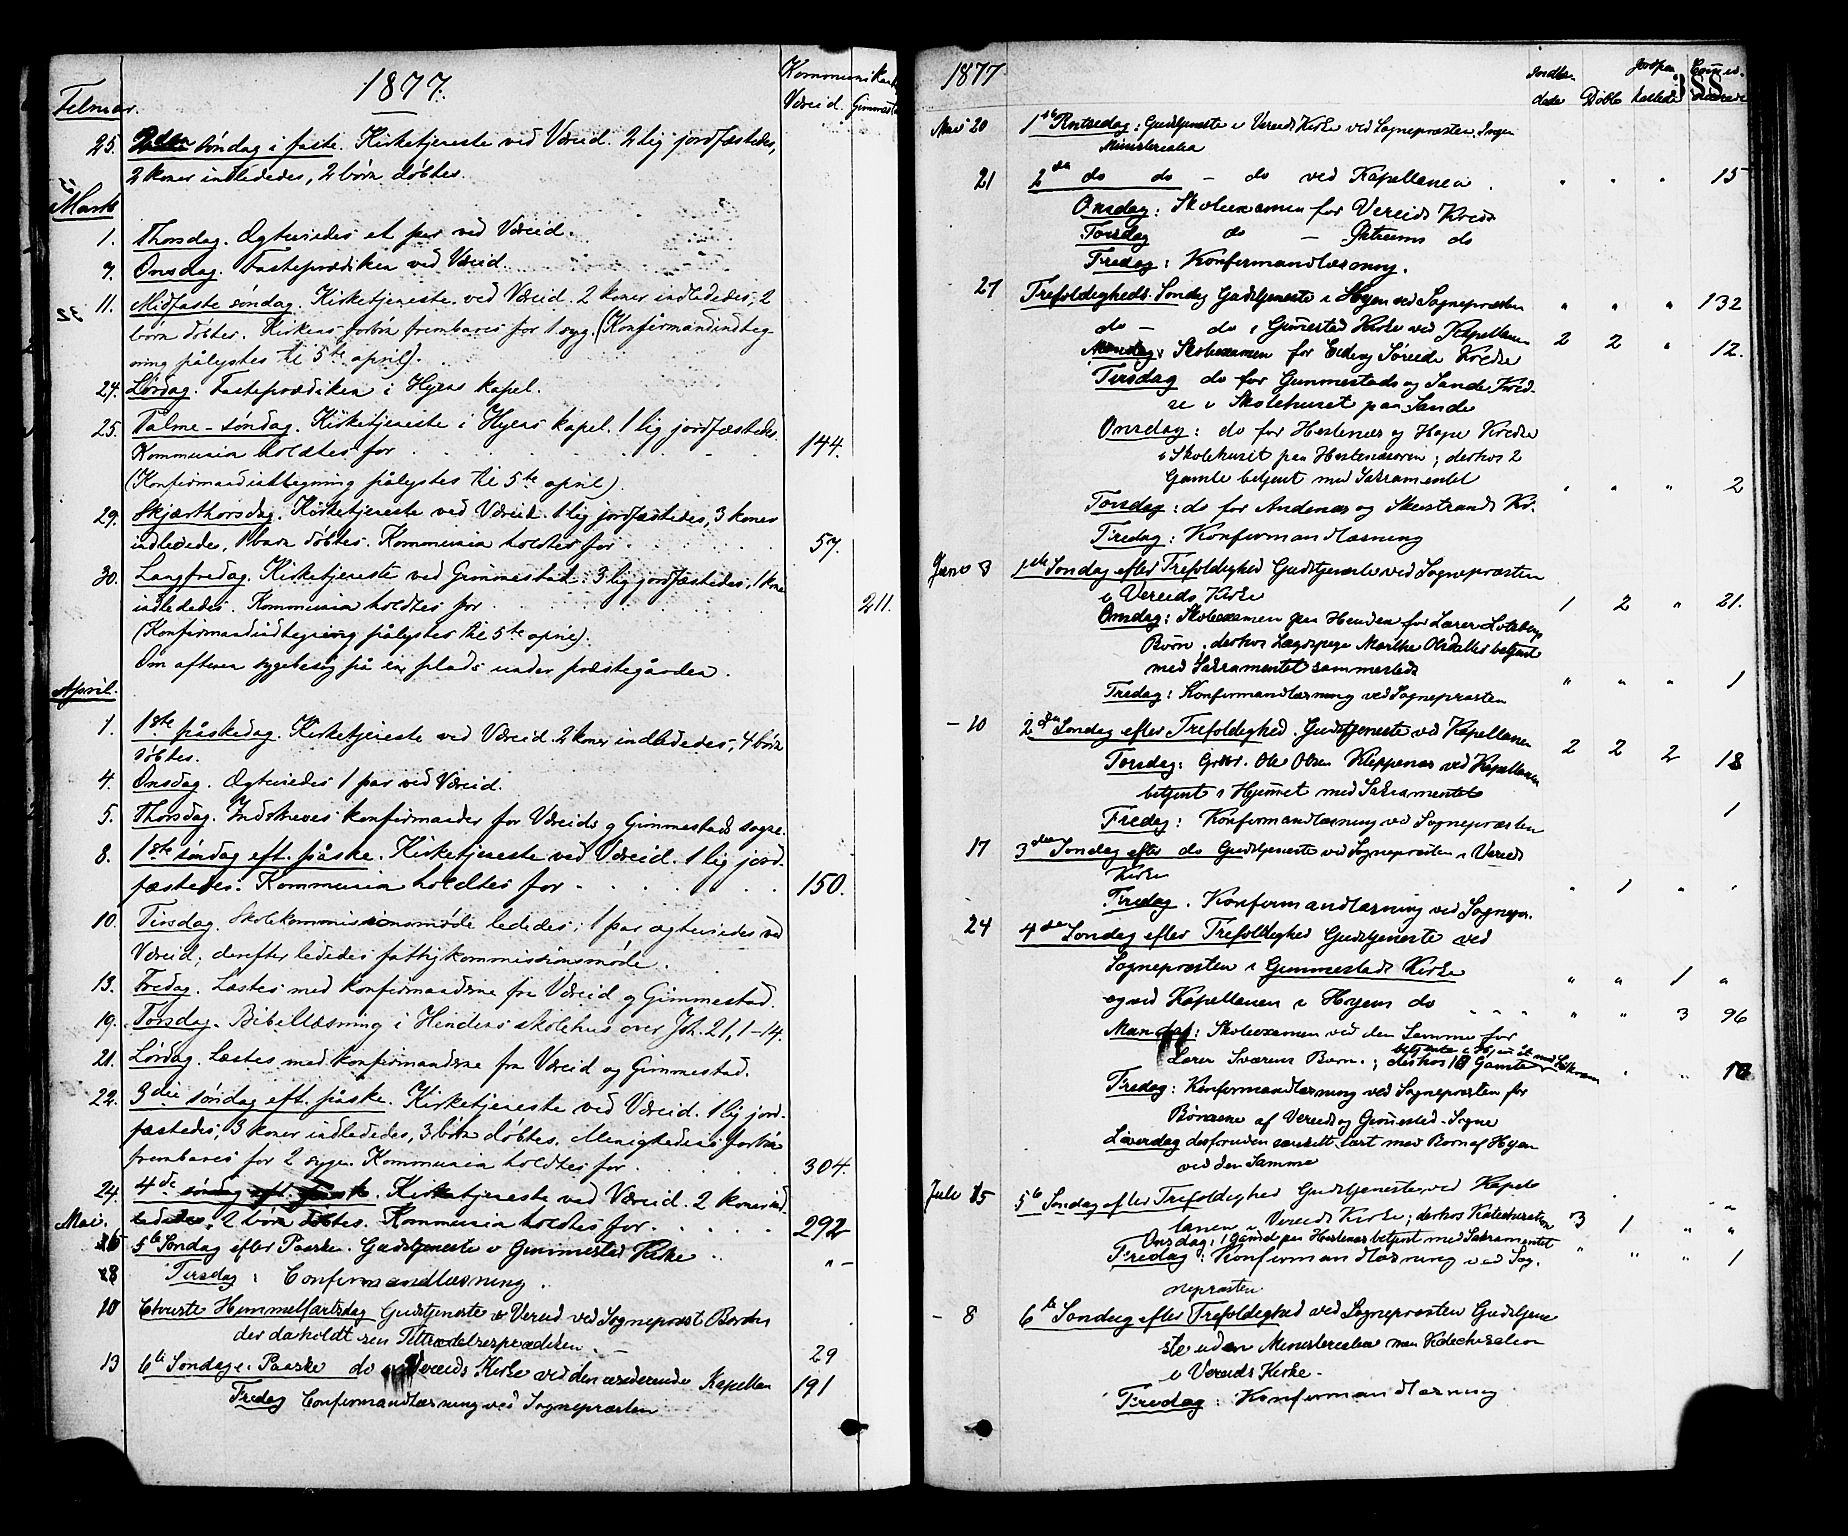 1877.
Kommunikanter
Februar.
Vereid. Gimmestad
25. 2den søndag i faste. Kirketjeneste ved Vereid. 2 lig jordfæstedes,
2 koner indlededes, 2 børn døbtes.
Marts
1. Thorsdag. Ægteviedes et par ved Vereid.
7. Onsdag. Fasteprædiken ved Vereid.
11. Midfaste søndag. Kirketjeneste ved Vereid. 2 koner indlededes, 2
børn døbtes. Kirkens forbøn frembares for 1 syg. (Konfirmandindteg
ning pålystes til 5te april).
24. Lørdag. Fasteprædiken i Hyens kapel.
25. Palme-søndag. Kirketjeneste i Hyens kapel. 1 lig jordfæstedes.
Kommunion holdtes for 144.
(Konfirmandindtegning pålystes til 5te april)
29. Skjærthorsdag. Kirketjeneste ved Vereid. 1 lig jordfæstedes, 3 koner
indlededes, 1 barn døbtes. Kommunion holdtes for 57.
30. Langfredag. Kirketjeneste ved Gimmestad. 3 lig jordfæstedes, 1 kone
indlededes. Kommunion holdtes for 211.
(Konfirmandindtegning pålystes til 5te april).
Om aftenen sygebesøg på en plads under præstegården.
April.
1. 1ste påskedag. Kirketjeneste ved Vereid. 2 koner indlededes, 4 børn
døbtes.
4. Onsdag. Ægteviedes 1 par ved Vereid.
5. Thorsdag. Indskreves konfirmander for Vereids og Gimmestads sogne.
8. 1ste søndag eft. påske. Kirketjeneste ved Vereid. 1 lig jord-
fæstedes. Kommunion holdtes for 150.
10. Tirsdag. Skolekommissionsmøde lededes; 1 par ægteviedes ved
Vereid; derefter lededes fattigkommissionsmøde.
13. Fredag. Læstes med konfirmanderne fra Vereid og Gimmestad.
19. Torsdag. Bibellæsning i Hindens skolehus over Joh. 21, 1-14.
21. Lørdag. Læstes med konfirmanderne fra Vereid og Gimmestad.
22. 3die søndag eft. påske. Kirketjeneste ved Vereid. 1 lig jord-
fæstedes, 3 koner indlededes, 3 børn døbtes. Menighedens forbøn
frembares for 2 syge. Kommunion holdtes for 304.
24. 4de søndag eft. påske. Kirketjeneste ved Vereid. 2 koner ind
lededes, 2 børn døbtes. Kommunion holdtes for 292
Mai.
6 5te Søndag efter Paaske. Gudstjeneste i Gimmestad Kirke " -
8 Tirsdag: Confirmandlæsning.
10 Christi Himmelfartsdag Gudstjeneste i Vereid ved Sognepræst
der da holdt sin Tiltrædelsesprædiken. 29
13 6te Søndag e. Paaske do i Vereids Kirke ved den residerende Kapellan 191
Fredag Confirmandlæsning ved Sognepræsten
1877
388
Indle- dede Døbte Jordpaa kastede Comu- nicerede
Mai 20 1ste Pintsedag: Gudstjeneste i Vereids Kirke ved Sognepræsten. Ingen
Ministerialia
21 2den do do - do ved Kapellanen. " " " 15
Onsdag: Skoleexamen for Vereids Kreds
Torsdag do - do
Fredag: Konfirmandlæsning.
27 Trefoldigheds Søndag Gudstjeneste i Hyen ved Sognepræsten " " " 132
do - do i Gimestad Kirke ved Kapellanen 2 2 " 12.
Mandag: Skoleexamen for Eide og Søreide Kredse
Tirsdag do for Gimmestads og Sande Kred-
se i Skolehuset paa Sande
Onsdag: do for Hestenæs og Hope Kredse
i Skolehuset paa Hestenæsøren; derhos 2
Gamle betjent med Sakramentet " " " 2
Torsdag: do for Andenæs og Skeistrands Kr.
Fredag: Konfirmandlæsning
Juni 3 1ste Søndag efter Trefoldighed Gudstjeneste ved Sognepræsten
i Vereids Kirke 1 2 " 21.
Onsdag: Skoleexamen paa Henden for Lærer Loteberg
Børn, derhos Lægdspige Marthe Olsdatter betjent
med Sakramentet sammesteds " " " 1
Fredag: Konfirmandlæsning ved Sognepræsten
- 10 2den Søndag efter Trefoldighed. Gudstjeneste ved Kapellanen 2 2 2 18
Torsdag: Gbr. Ole Olsen Kleppenæs ved Kapellanen
betjent i Hjemmet med Sakramentet 1
Fredag: Konfirmandlæsning ved Sognepræsten
17 3die Søndag efter do Gudstjeneste ved Sognepræsten i Vereids
Kirke " 1 " "
Fredag. Konfirmandlæsning ved Sognepr.
24 4de Søndag efter Trefoldighed Gudstjeneste ved
Sognepræsten i Gimmestads Kirke " " 1 "
og ved Kapellanen i Hyens do " " 3 96
Mandag: Skoleexamen ved den Samme for
Lærer Sværens Børn; derhos 10 Gamle betjente i Hyen med Sakram 10
Fredag: Konfirmandlæsning ved Sognepræsten for
Børnene af Vereid og Gimestad Sogne
Løverdag desforuden særskilt læst med Børn af Hyen
ved den Samme
Juli 1 5te Søndag efter Trefoldighed Gudstjeneste ved Kapel-
lanen i Vereids Kirke; derhos Katekisation 3 1 " "
Onsdag: 1 Gamel paa Hestenæs betjent med Sakramentet
Fredag: Konfirmandlæsning ved Sog- " " " 1
nepræsten
- 8 6te Søndag efter Trefoldighed ved Sognepræsten Gudstjene
ste uden Ministerialia men Katekisation
i Vereids Kirke.
Fredag: Konfirmandlæsning